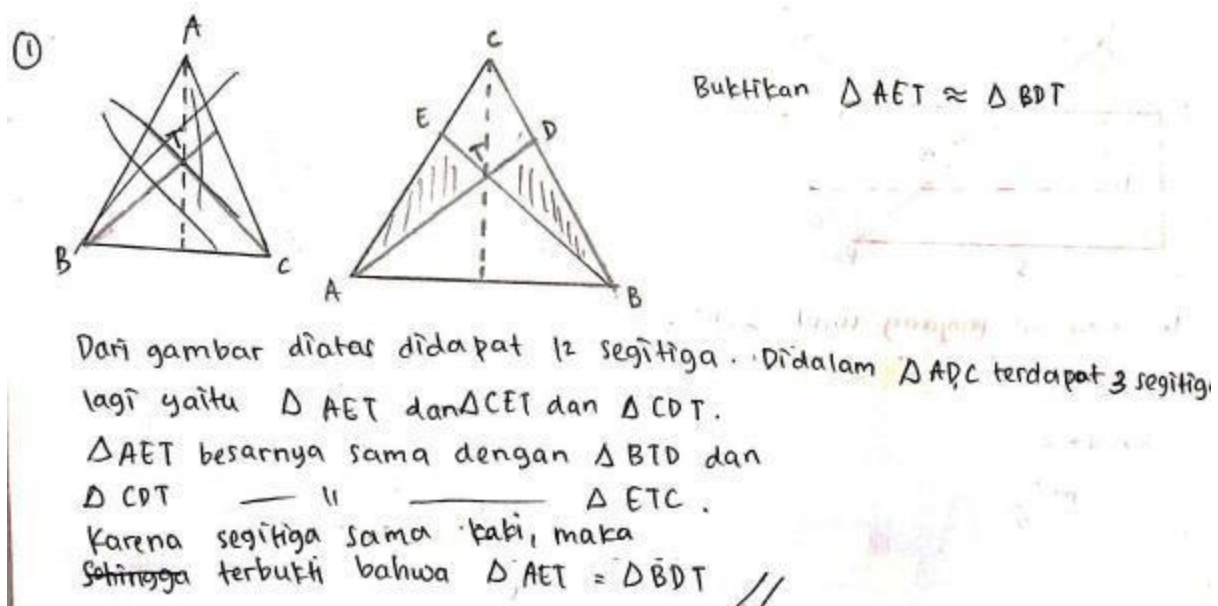 ①
A
T
B
C
C
E
D
T
A
B
Buktikan Δ AET ≈ Δ BDT
Dari gambar diatas didapat 12 segitiga. Didalam Δ ADC terdapat 3 segitiga
lagi yaitu Δ AET dan Δ CET dan Δ CDT.
Δ AET besarnya sama dengan Δ BTD dan
Δ CDT — 〃 — Δ ETC.
Karena segitiga sama kaki, maka
Sehingga terbukti bahwa Δ AET = Δ BDT //